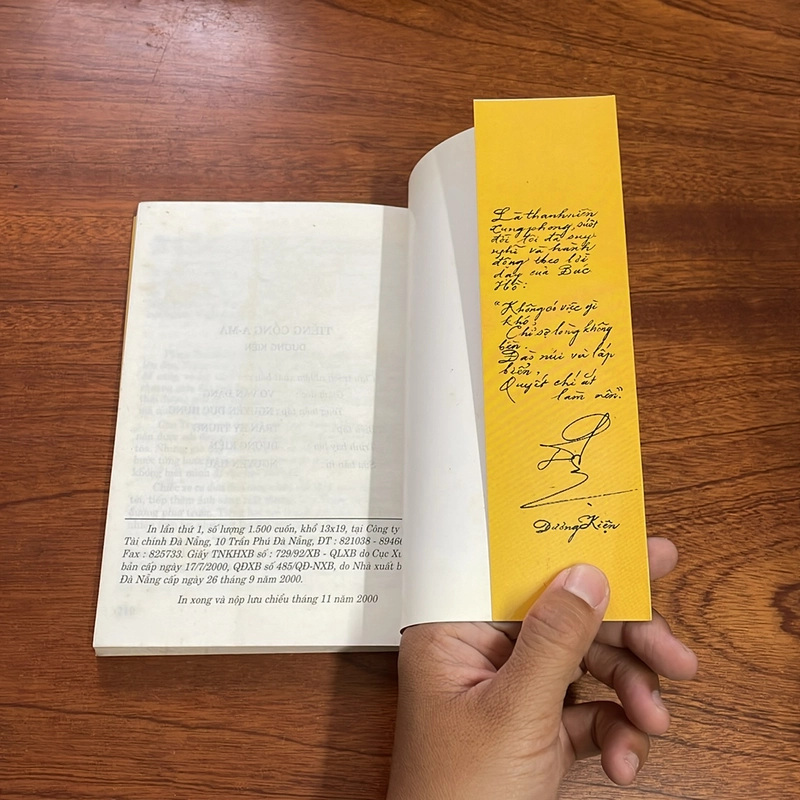 In lần thứ 1, số lượng 1.500 cuốn, khổ 13x19, tại Công ty
Tài chính Đà Nẵng, 10 Trần Phú Đà Nẵng, ĐT : 821038 -
Fax : 825733. Giấy TNKHXB số : 729/92/XB - QLXB do Cục
bản cấp ngày 17/7/2000, QĐXB số 485/QĐ-NXB, do Nhà xuất
Đà Nẵng cấp ngày 26 tháng 9 năm 2000.
In xong và nộp lưu chiểu tháng 11 năm 2000
Là thanh niên
xung phong, suốt
đời tôi đã suy
nghĩ và hành
động theo lời
dạy của Bác
Hồ:
"Không có việc gì
khó,
Chỉ sợ lòng không
bền.
Đào núi và lấp
biển,
Quyết chí ắt
làm nên".
Dương Kiện